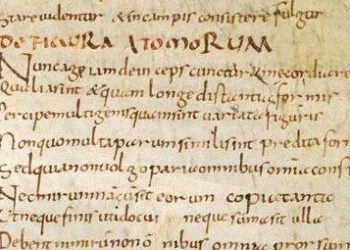 stare videntur & in campis consistere fulgur
DE FIGURA ATOMORUM
Nunc age iam deinceps cunctar
Qualia sint & quam longe distantia formis
Percipe multigenis quam sint variata figuris
Non quo multa parum simili sint predita for
Sed quia non volgo paria omnibus omnia cons
Nec mirum nam cū sit eorum copia tanta
Ut neque finis uti docui neque summa sit ulla
Debent nimirum non omnibus omnia prorsum